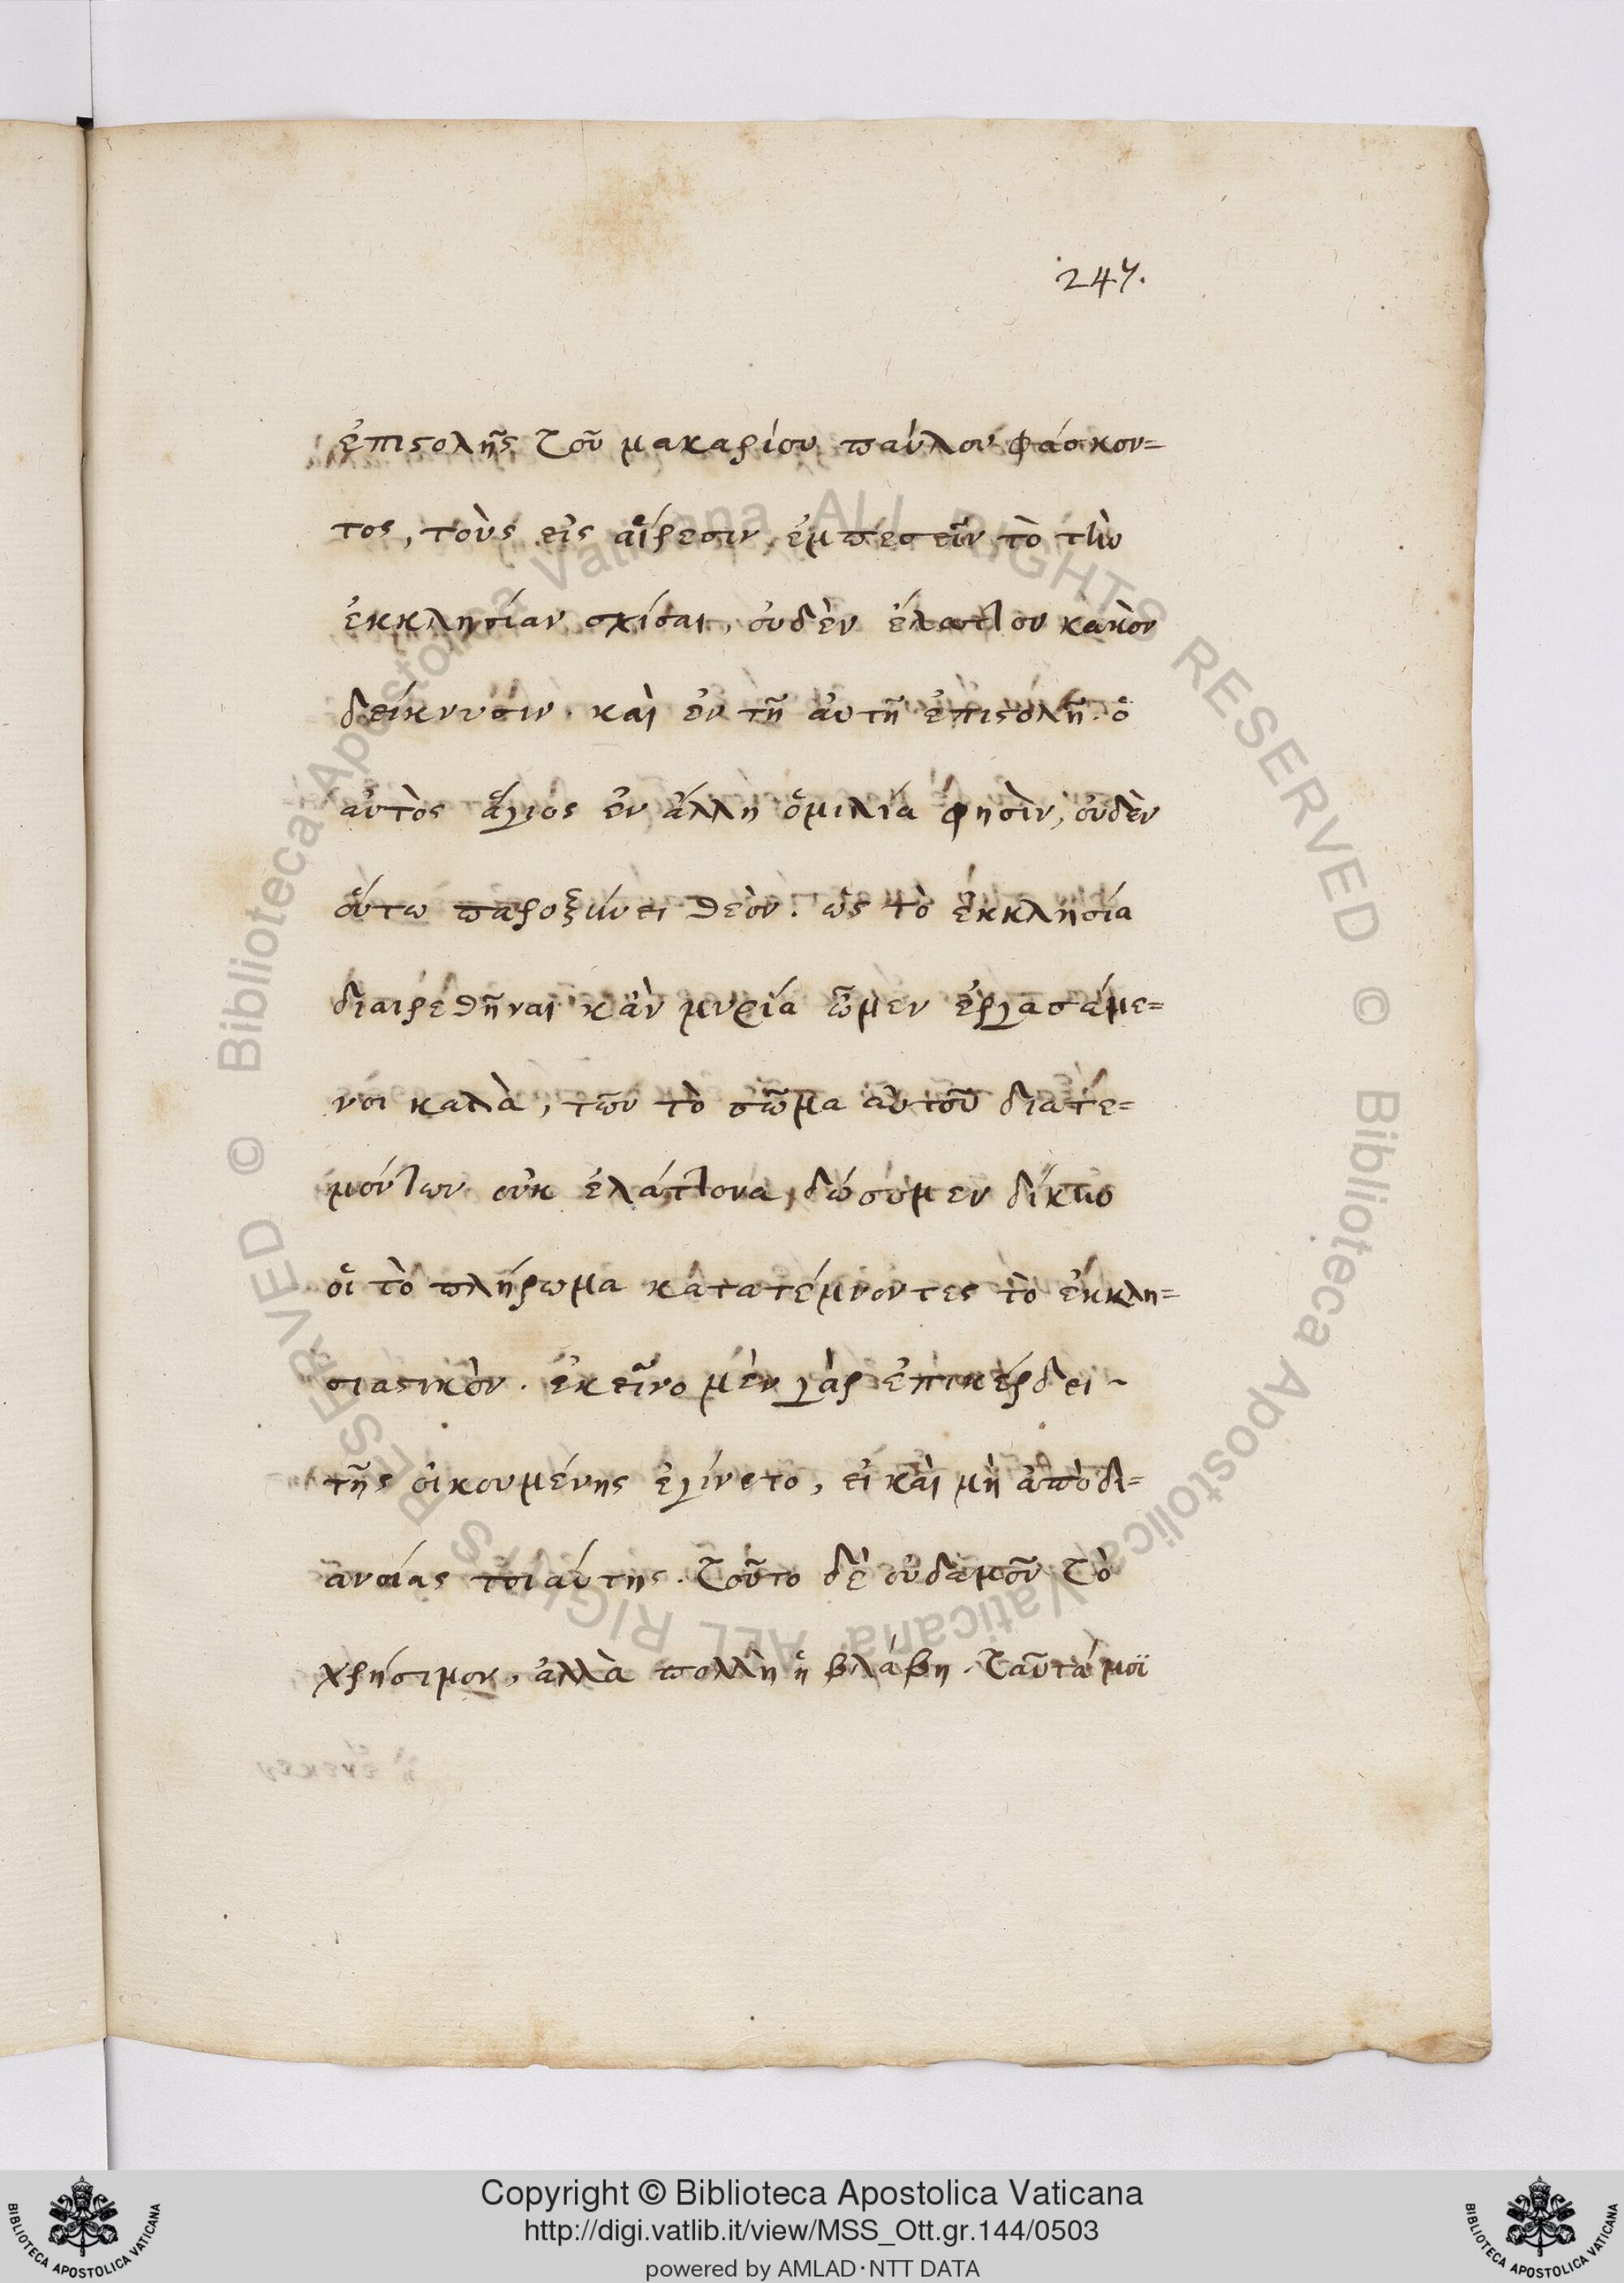 247.
ἐπιστολῆς τοῦ μακαρίου παύλου φάσκον=
τος, τοὺς εἰς αἵρεσιν ἐμπεσεῖν τὸ τὴν
ἐκκλησίαν σχίσαι, οὐδὲν ἔλαττον κακὸν
δείκνυσιν. καὶ ἐν τῇ αὐτῇ ἐπιστολῇ. ὁ
αὐτὸς ἅγιος ἐν ἄλλη ὁμιλία φησὶν, οὐδὲν
οὕτω παροξύνει θεὸν. ὡς τὸ ἐκκλησία
διαιρεθῆναι κἀν μυρία ὦμεν ἐργασάμε=
νοι καλὰ, τῶν τὸ σῶμα αὐτοῦ διατε=
μόντων οὐκ ἐλάττονα, δώσομεν δίκην
οἱ τὸ πλήρωμα κατατέμνοντες τὸ ἐκκλη=
σιαστικὸν. ἐκεῖνο μὲν γὰρ ἐπικέρδει ~
τῆς οἰκουμένης ἐγίνετο, εἰ καὶ μὴ ἀπὸ δι=
ανοίας τοιαύτης. τοῦτο δὲ οὐδαμοῦ τὸ
χρήσιμον, ἀλλὰ πολλὴ ἡ βλάβη. ταῦτά μοϊ
Copyright © Biblioteca Apostolica Vaticana
http://digi.vatlib.it/view/MSS_Ott.gr.144/0503
powered by AMLAD·NTT DATA
BIBLIOTECA APOSTOLICA VATICANA
BIBLIOTECA APOSTOLICA VATICANA
© Biblioteca Apostolica Vaticana ALL RIGHTS RESERVED
© Biblioteca Apostolica Vaticana ALL RIGHTS RESERVED